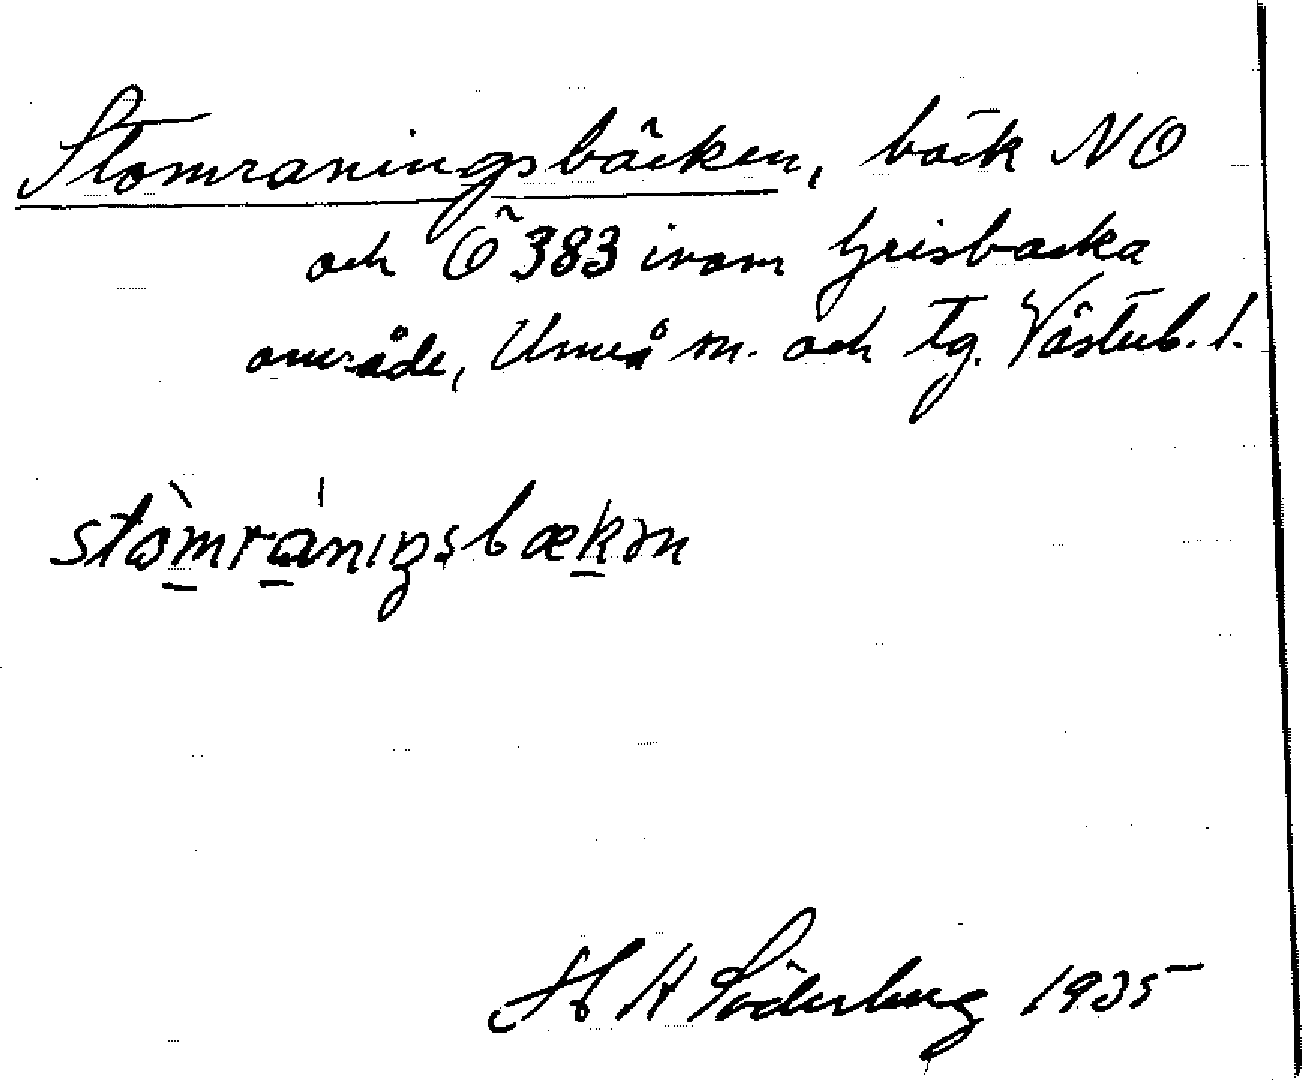 Stomraningsbäcken, bäck NO
och Ö 383 inom Grisbacka
område, Umeå sn. och tg. Västerb. l.
stòmránıŋsbækən
H A Söderberg 1935